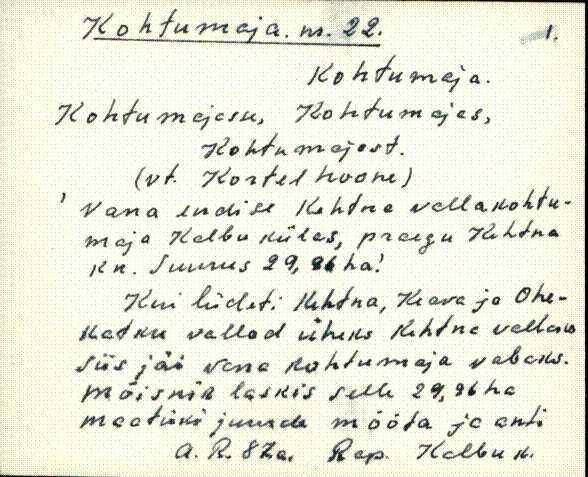 Kohtumaja. nr. 22. 1.
Kohtumaja.
Kohtumajasu, Kohtumajas,
Kohtumajast.
(vt. Kortel hoone)
' Vana endise Kehtna vallakohtu-
maja Kalbu külas, praegu Kehtna
kn. Suurus 29,96 ha!
Kui liideti Kehtna, Keava ja Ohe-
katku vallad üheks Kehtna vallaks
siis jäi vana kohtumaja vabaks.
Mõisnik laskis selle 29,96 ha
maatüki juurde mõõta ja anti
A. R. 87a. Rap. Kalbu k.